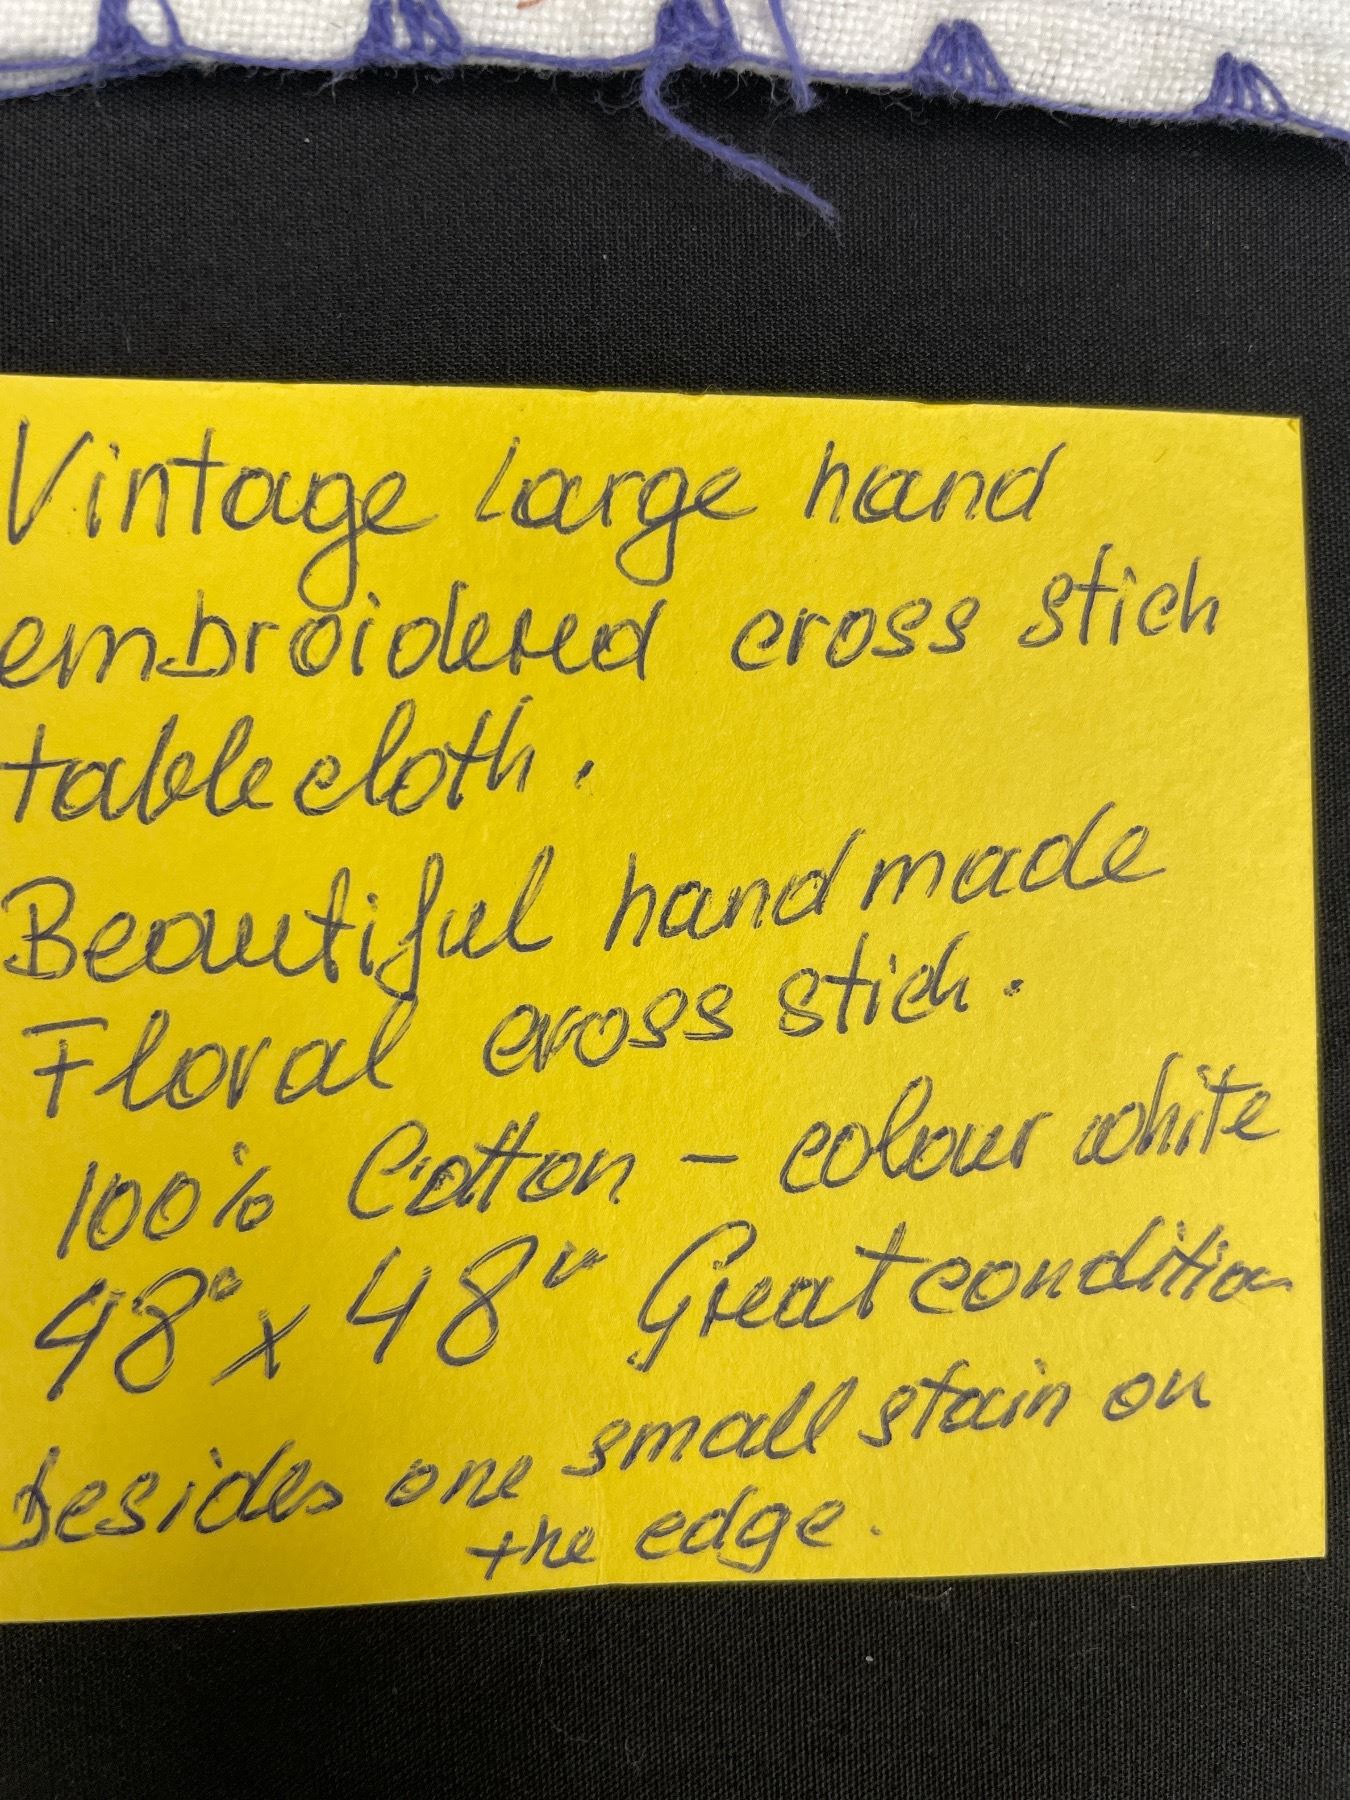 Vintage Large hand
embroidered cross stich
tablecloth.
Beautiful handmade
Floral cross stich.
100% Cotton - colour white
48" x 48" Great condition
besides one small stain on
the edge.